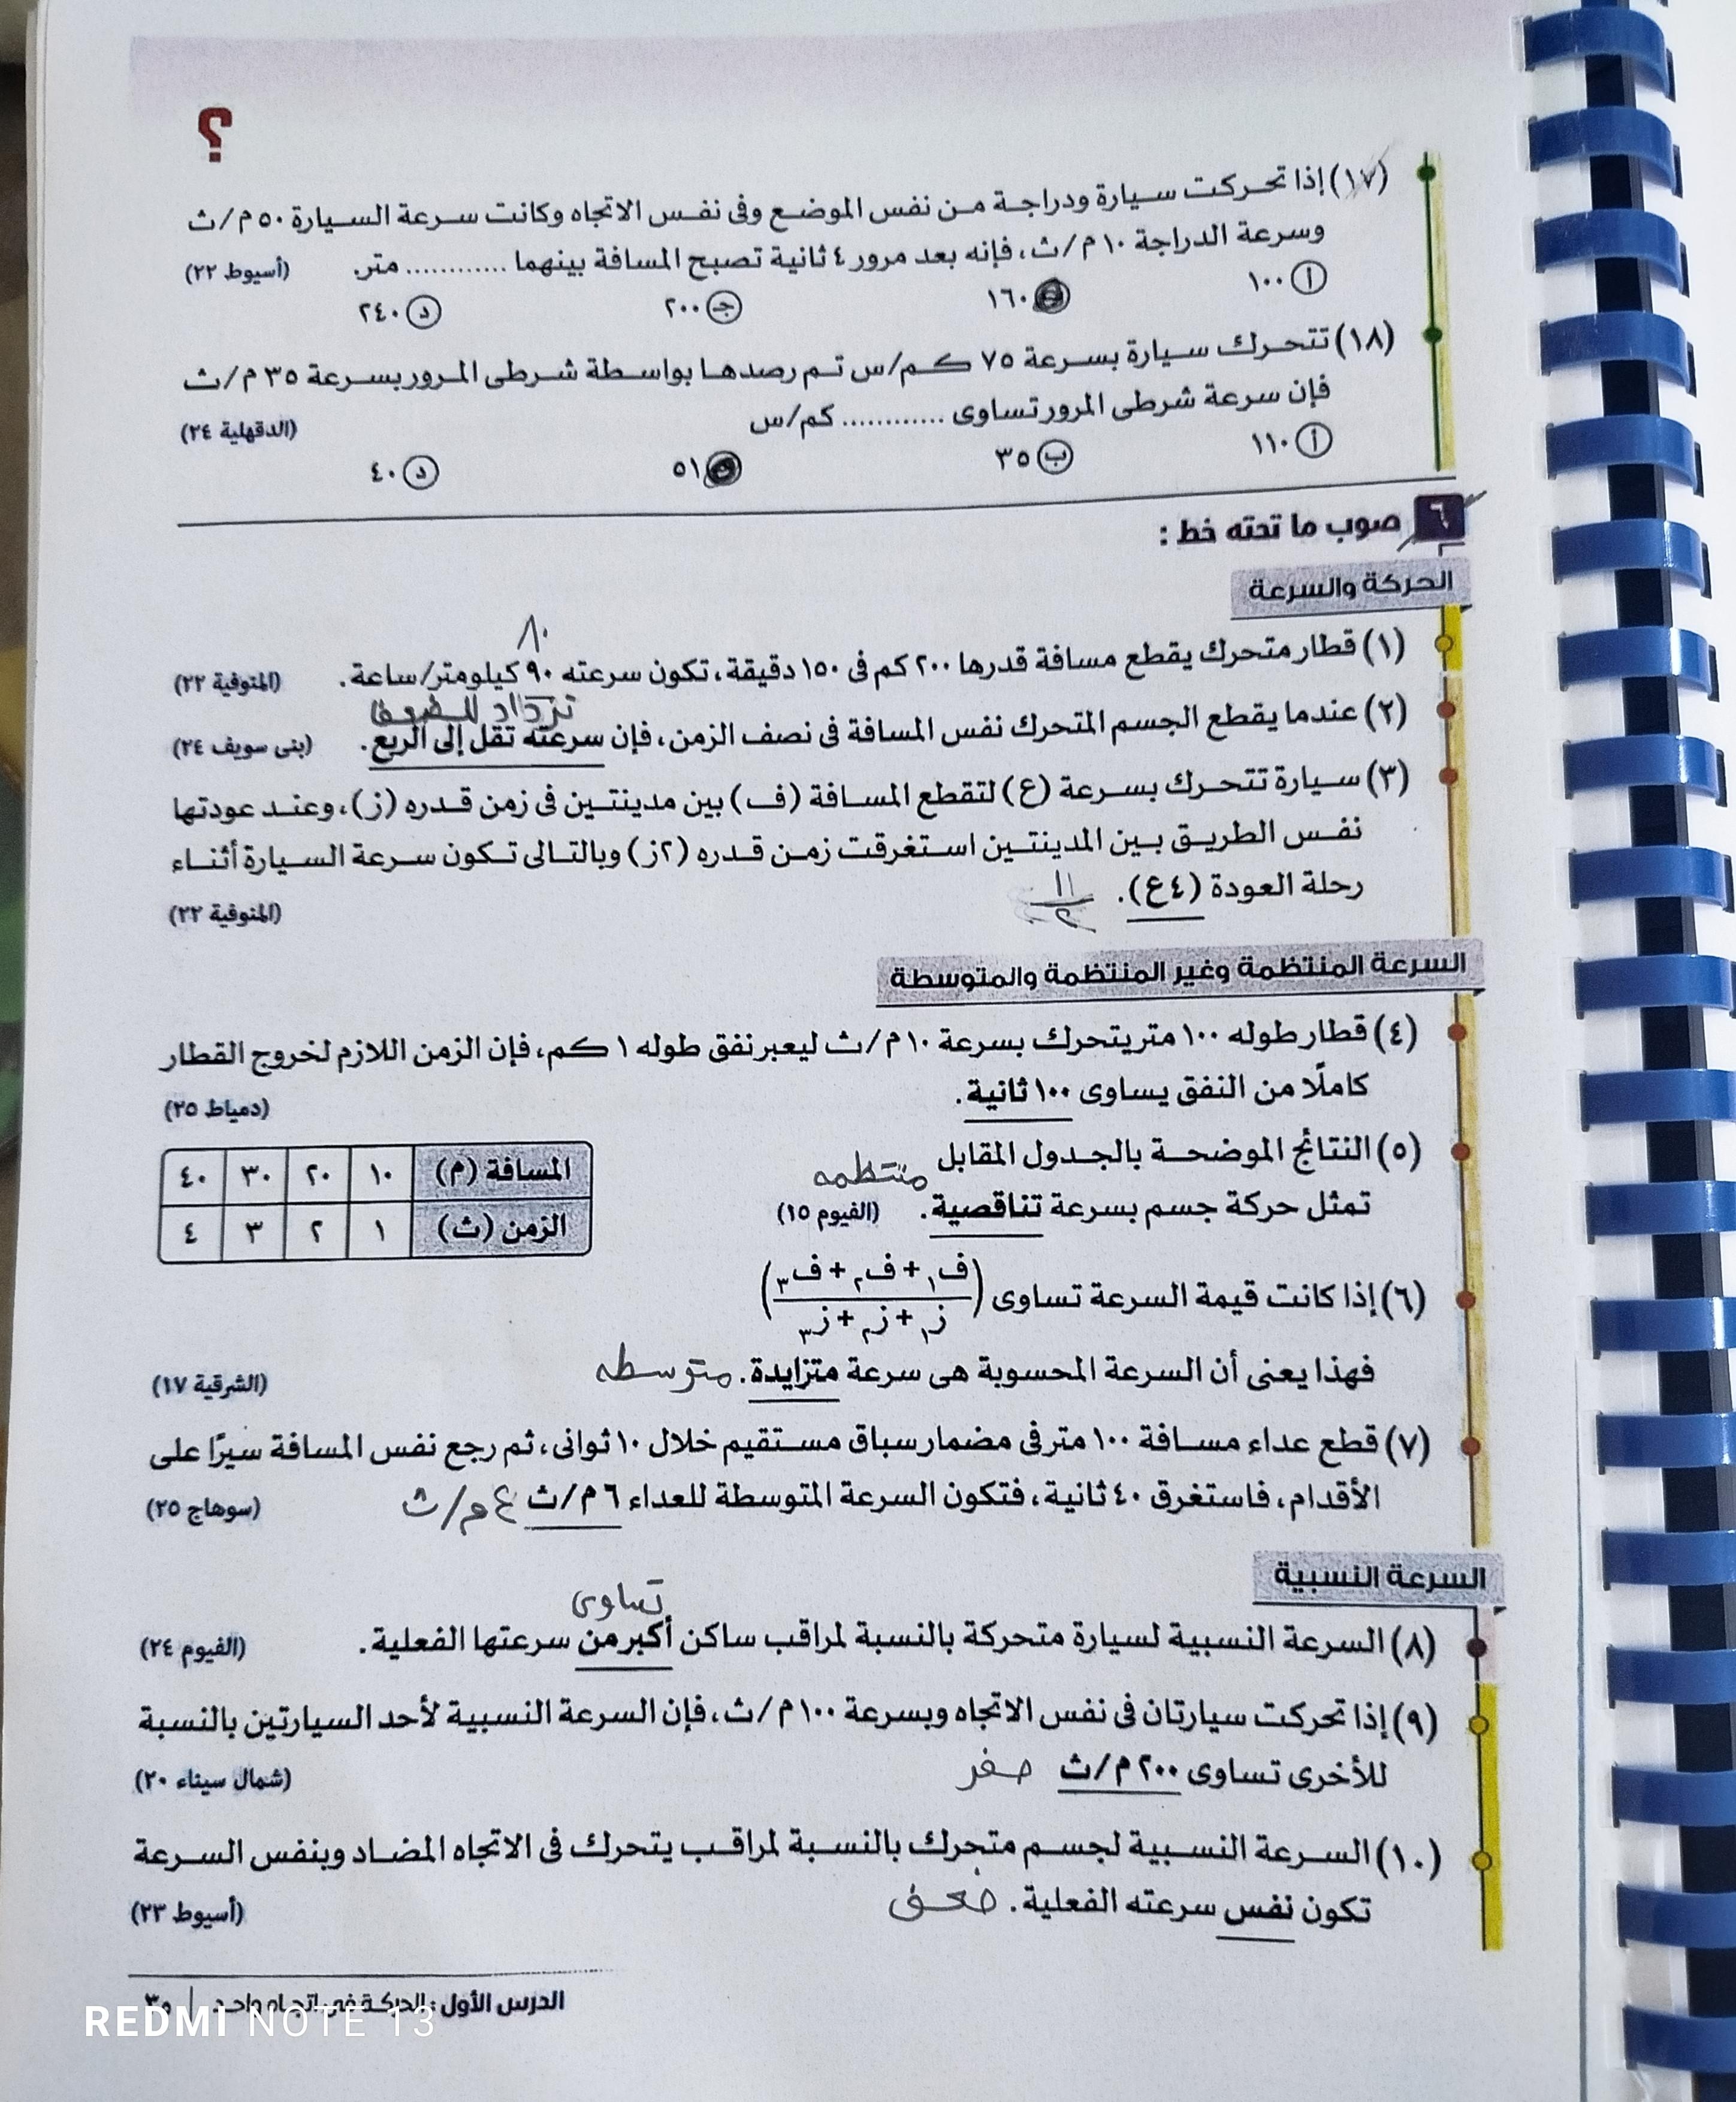 ؟
(١٧) إذا تحركت سيارة ودراجة من نفس الموضع وفى نفس الاتجاه وكانت سرعة السيارة ٥٠ م/ث
وسرعة الدراجة ١٠ م/ث، فإنه بعد مرور ٤ ثانية تصبح المسافة بينهما ............ متر.
(أسيوط ٢٢)
أ ١٠٠
١٦٠
جـ ٢٠٠
د ٢٤٠
(١٨) تتحرك سيارة بسرعة ٧٥ كم/س تم رصدها بواسطة شرطى المرور بسرعة ٣٥ م/ث
فإن سرعة شرطى المرور تساوى ............ كم/س
(الدقهلية ٢٤)
أ ١١٠
ب ٣٥
٥١
د ٤٠
٦ صوب ما تحته خط :
الحركة والسرعة
٨٠
(١) قطار متحرك يقطع مسافة قدرها ٢٠٠ كم فى ١٥٠ دقيقة، تكون سرعته ٩٠ كيلومتر/ساعة.
(المنوفية ٢٢)
تزداد للضعف
(٢) عندما يقطع الجسم المتحرك نفس المسافة فى نصف الزمن، فإن سرعته تقل إلى الربع.
(بنى سويف ٢٤)
(٣) سيارة تتحرك بسرعة (ع) لتقطع المسافة (ف) بين مدينتين فى زمن قدره (ز)، وعند عودتها
نفس الطريق بين المدينتين استغرقت زمن قدره (٢ز) وبالتالى تكون سرعة السيارة أثناء
رحلة العودة (٤ع).
(المنوفية ٢٢)
السرعة المنتظمة وغير المنتظمة والمتوسطة
(٤) قطار طوله ١٠٠ متر يتحرك بسرعة ١٠ م/ث ليعبر نفق طوله ١ كم، فإن الزمن اللازم لخروج القطار
كاملًا من النفق يساوى ١٠٠ ثانية.
(دمياط ٢٥)
(٥) النتائج الموضحة بالجدول المقابل
منتظمه
تمثل حركة جسم بسرعة تناقصية.
(الفيوم ١٥)
المسافة (م) ١٠ ٢٠ ٣٠ ٤٠
الزمن (ث) ١ ٢ ٣ ٤
(٦) إذا كانت قيمة السرعة تساوى (ف١ + ف٢ + ف٣ / ز١ + ز٢ + ز٣)
فهذا يعنى أن السرعة المحسوبة هى سرعة متزايدة. متوسطه
(الشرقية ١٧)
(٧) قطع عداء مسافة ١٠٠ متر فى مضمار سباق مستقيم خلال ١٠ ثوانى، ثم رجع نفس المسافة سيرًا على
الأقدام، فاستغرق ٤٠ ثانية، فتكون السرعة المتوسطة للعداء ٦ م/ث ٤ م/ث
(سوهاج ٢٥)
السرعة النسبية
تساوى
(٨) السرعة النسبية لسيارة متحركة بالنسبة لمراقب ساكن أكبر من سرعتها الفعلية.
(الفيوم ٢٤)
(٩) إذا تحركت سيارتان فى نفس الاتجاه وبسرعة ١٠٠ م/ث، فإن السرعة النسبية لأحد السيارتين بالنسبة
للأخرى تساوى ٢٠٠ م/ث صفر
(شمال سيناء ٢٠)
(١٠) السرعة النسبية لجسم متحرك بالنسبة لمراقب يتحرك فى الاتجاه المضاد وبنفس السرعة
تكون نفس سرعته الفعلية. ضعف
(أسيوط ٢٣)
الدرس الأول : الحركة فى اتجاه واحد | ٣٥
REDMI NOTE 13